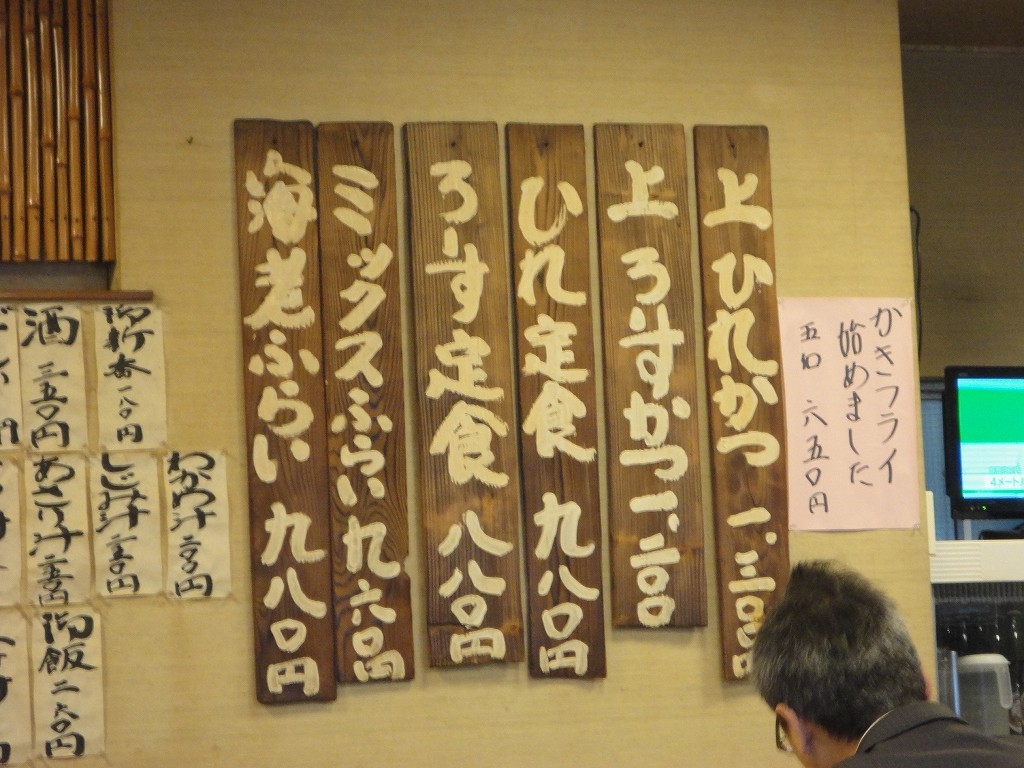 かきフライ
始めました
五コ 六五〇円
上ひれかつ 一、三〇〇円
上ろーすかつ 一、二〇〇
ひれ定食 九八〇円
ろーす定食 八八〇円
ミックスふらい 九六〇円
海老ふらい 九八〇円
御新香 一八〇円
酒 三五〇円
わかめ汁 二〇〇円
しじみ汁 二五〇円
あさり汁
御飯 二六〇円
4メート